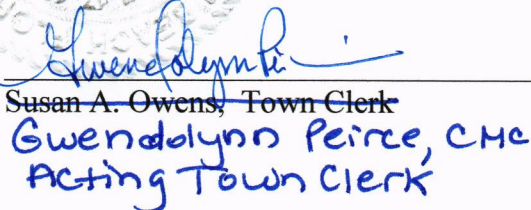 Gwendolynn Pei
Susan A. Owens, Town Clerk
Gwendolynn Peirce, CMC
Acting Town Clerk